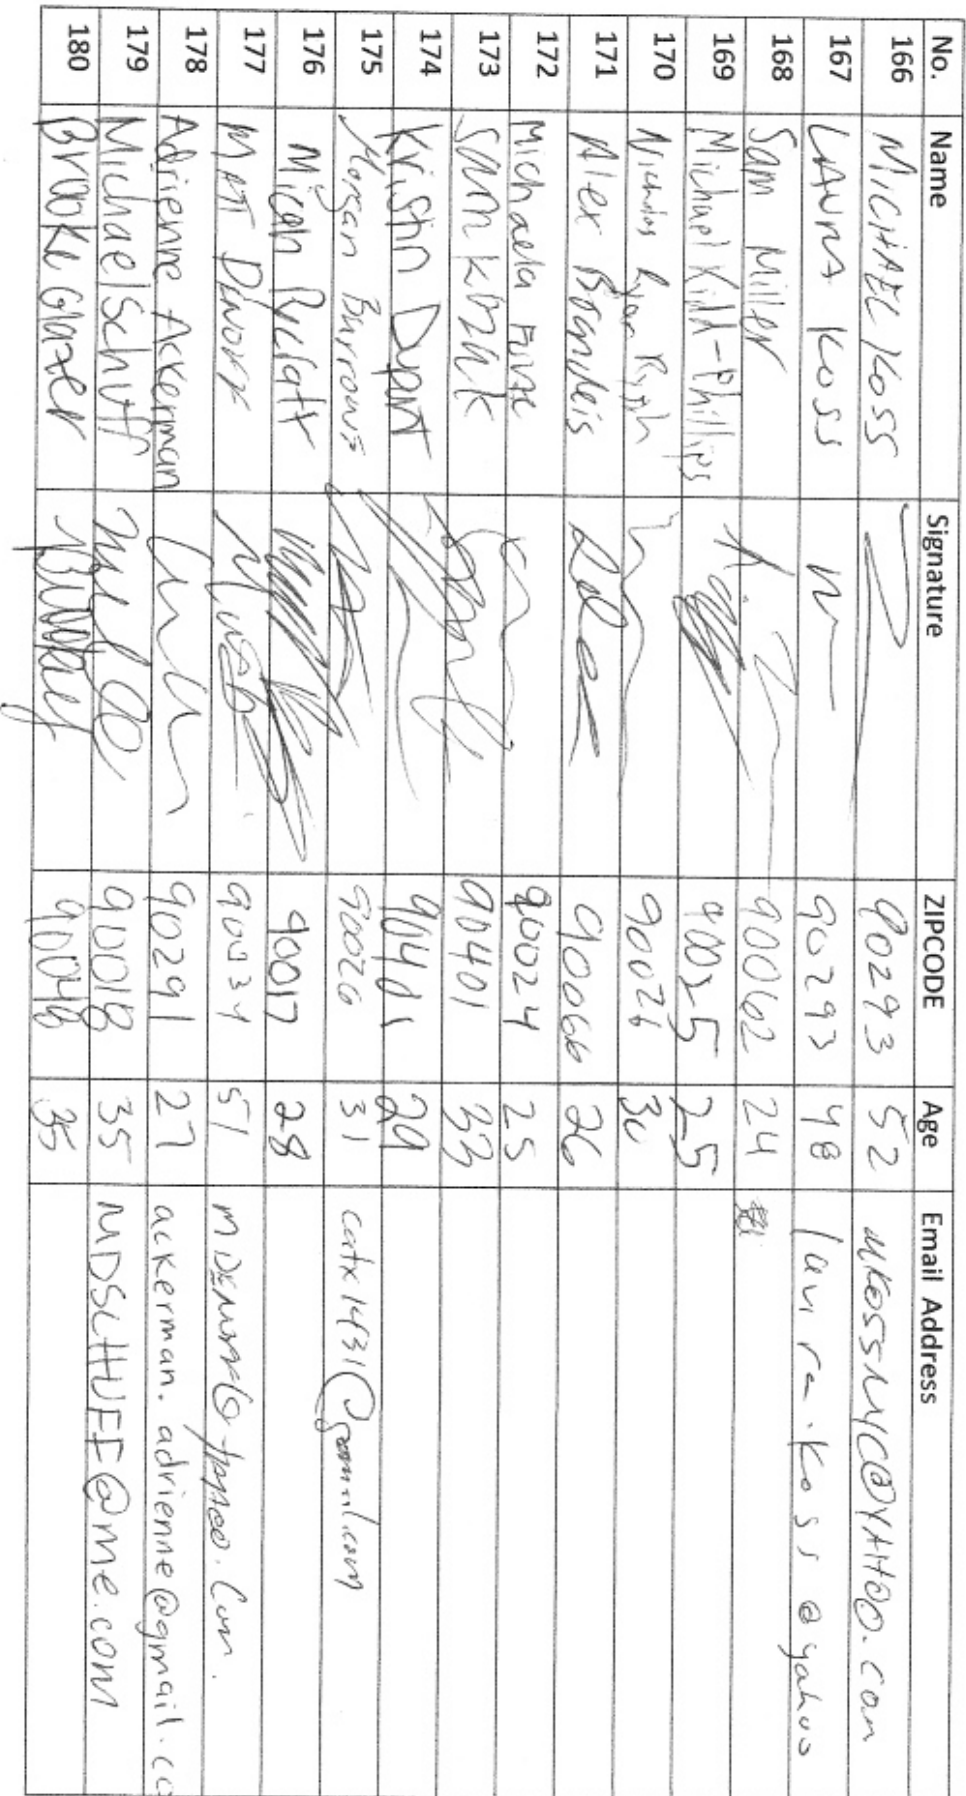 No. Name Signature ZIPCODE Age Email Address
166 MICHAEL KOSS 90293 52 MKOSSNYC@YAHOO.COM
167 LAURA KOSS 90293 48 laura.koss@yahoo
168 Sam Miller 90062 24
169 Michael Kidd-Phillips 90025 25
170 Nicholas Ryan 90026 30
171 Alex Brandeis 90066 26
172 Michaela 90024 25
173 Sam 90401 33
174 Kristin Dupont 90401 29
175 Morgan Burrows 90026 31 catx1431@gmail.com
176 Micah 90017 28
177 MATT 90034 51
178 Adrienne Ackerman 90291 27 ackerman.adrienne@gmail.co
179 Michael Schuff 90018 35 MDSCHUFF@me.com
180 Brooke Glazer 90048 35